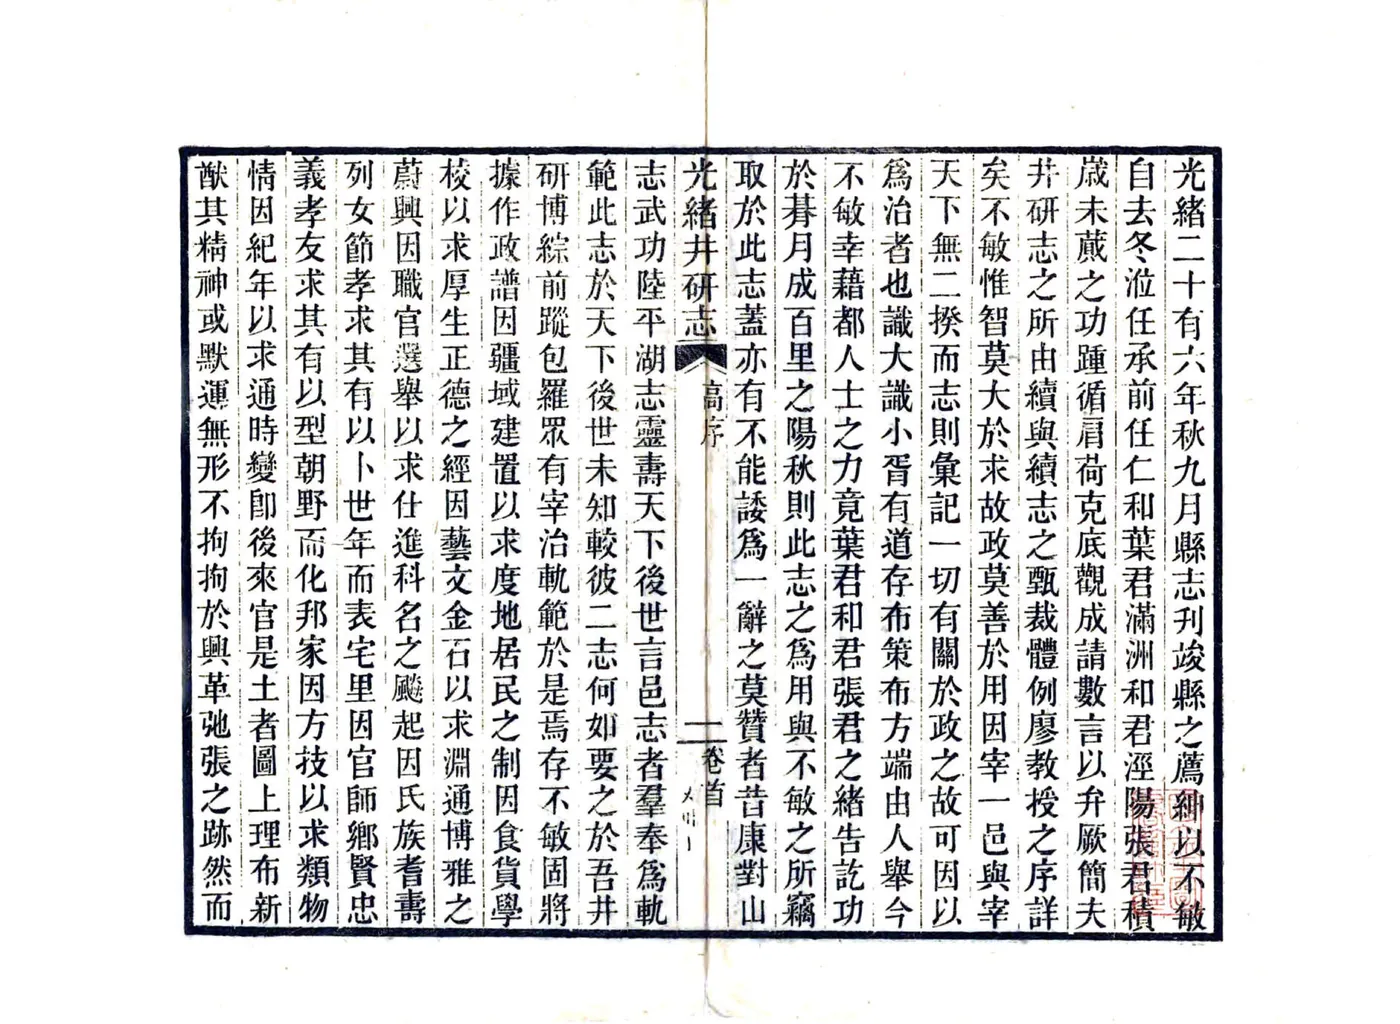 光緒二十有六年秋九月縣志刊竣縣之薦紳以不敏
自去冬涖任承前任仁和葉君滿洲和君涇陽張君積
歲未蕆之功踵循肩荷克底觀成請數言以弁厥簡夫
井研志之所由續與續志之甄裁體例廖教授之序詳
矣不敏惟智莫大於求故政莫善於用因宰一邑與宰
天下無二揆而志則彙記一切有關於政之故可因以
爲治者也識大識小胥有道存布策布方端由人舉今
不敏幸藉都人士之力竟葉君和君張君之緒告訖功
於朞月成百里之陽秋則此志之爲用與不敏之所竊
取於此志蓋亦有不能諉爲一辭之莫贊者昔康對山
光緒井研志
高序
二
卷首
志武功陸平湖志靈壽天下後世言邑志者羣奉爲軌
範此志於天下後世未知較彼二志何如要之於吾井
研博綜前蹤包羅眾有宰治軌範於是焉存不敏固將
據作政譜因疆域建置以求度地居民之制因食貨學
校以求厚生正德之經因藝文金石以求淵通博雅之
蔚興因職官選舉以求仕進科名之飈起因氏族耆壽
列女節孝求其有以卜世年而表宅里因官師鄉賢忠
義孝友求其有以型朝野而化邦家因方技以求類物
情因紀年以求通時變卽後來官是土者圖上理布新
猷其精神或默運無形不拘拘於興革弛張之跡然而